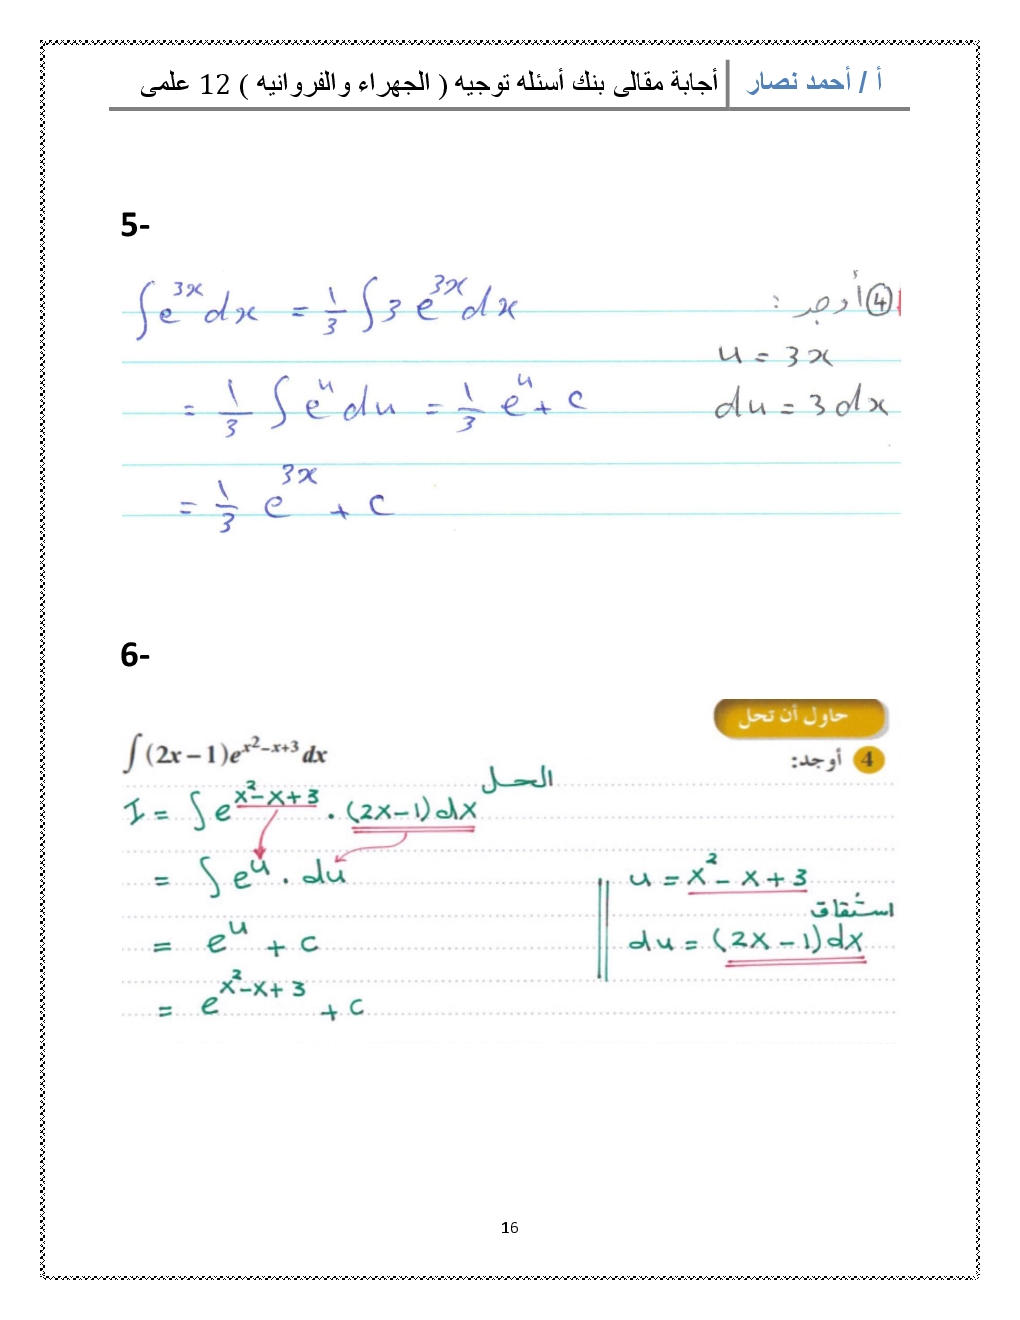 أ / أحمد نصار
أجابة مقالى بنك أسئله توجيه ( الجهراء والفروانيه ) 12 علمى
5-
④ أوجد :
∫e^{3x} dx = 1/3 ∫3 e^{3x} dx
u = 3x
= 1/3 ∫e^u du = 1/3 e^u + c
du = 3dx
= 1/3 e^{3x} + c
6-
حاول أن تحل
4 أوجد:
∫(2x – 1)e^{x²–x+3} dx
الحل
I = ∫e^{x²-x+3} . (2x-1)dx
= ∫e^u . du
u = x² - x + 3
اشتقاق
= e^u + c
du = (2x - 1)dx
= e^{x²-x+3} + c
16